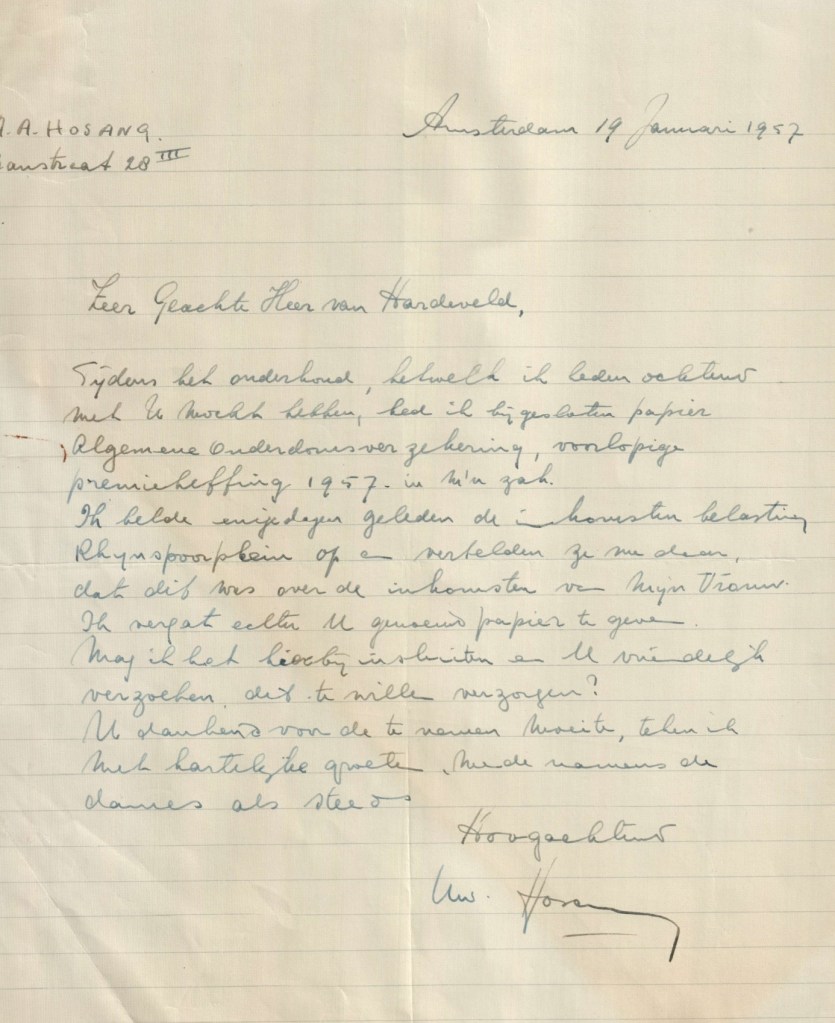 A. A. HOSANG.
anstraat 28 III
Amsterdam 19 Januari 1957
Zeer Geachte Heer van Hardeveld,
Tijdens het onderhoud, hetwelk ik leden ochtend
met U mocht hebben, had ik bijgesloten papier
Algemene Ouderdomsverzekering, voorlopige
premieheffing 1957. in m'n zak.
Ik belde enige dagen geleden de inkomsten belasting
Rhijnspoorplein op en vertelden ze me daar,
dat dit was over de inkomsten van mijn Vrouw.
Ik vergat echter U genoemd papier te geven.
Mag ik het hierbij insluiten en U vriendelijk
verzoeken dit te willen verzorgen?
U dankend voor de te nemen moeite, teken ik
met hartelijke groeten, mede namens de
dames als steeds
Hoogachtend
Uw. Hosang